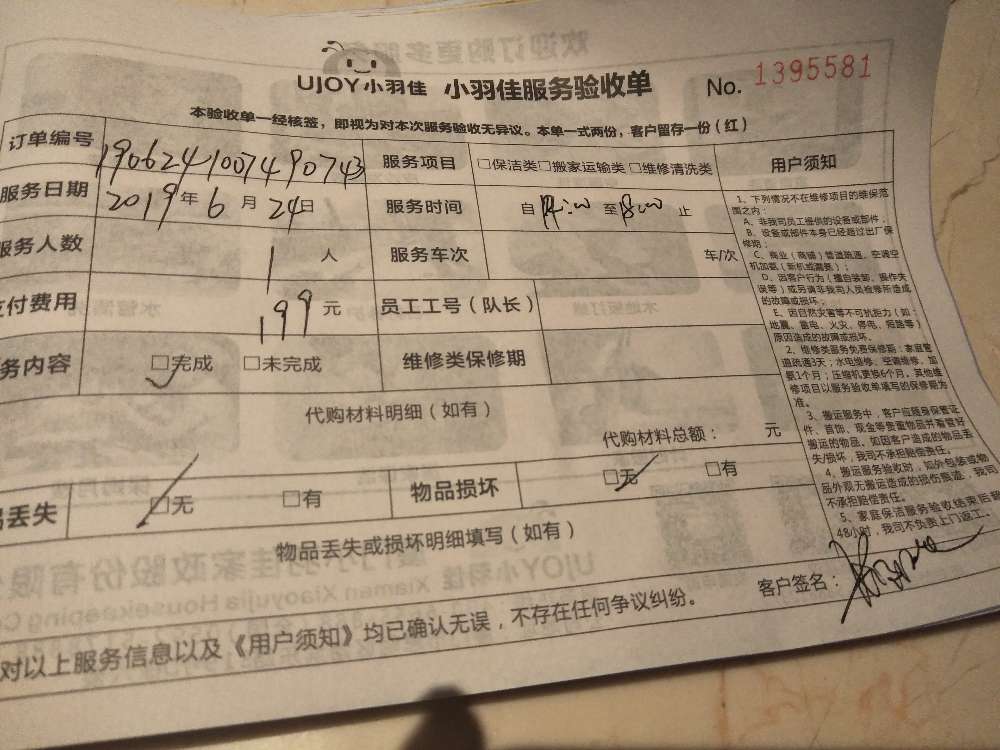 UJOY小羽佳 小羽佳服务验收单 No. 1395581
本验收单一经核签，即视为对本次服务验收无异议。本单一式两份，客户留存一份（红）
订单编号 190624100749 0743 服务项目 □保洁类□搬家运输类□维修清洗类
服务日期 2019年6月24日 服务时间 自14:00至18:00止
服务人数 1人 服务车次 车/次
支付费用 199元 员工工号（队长）
务内容 □完成 □未完成 维修类保修期
代购材料明细（如有）
代购材料总额： 元
品丢失 □无 □有 物品损坏 □无 □有
物品丢失或损坏明细填写（如有）
用户须知
1、下列情况不在维修项目的维保范
围之内：
A、非我司员工提供的设备或部件；
B、设备或部件本身已经超过出厂保
修期；
C、商业（商铺）管道疏通、空调空
机加氨（新机或漏氨）；
D、因客户行为（擅自装卸、操作失
误等）或另请非我司人员检修所造成
的故障或损坏；
E、因自然灾害等不可抗拒力（如：
地震、雷电、火灾、停电、短路等）
原因造成的故障或损坏。
2、维修类服务免费保修期：家庭管
道疏通3天；水电维修、空调维修、加
氨1个月；压缩机更换6个月。其他维
修项目以服务验收单填写的保修期为
准。
3、搬运服务中，客户应随身保管证
件、首饰、现金等贵重物品并看管好
搬运的物品。如因客户造成的物品丢
失/损坏，我司不承担赔偿责任。
4、搬运服务验收时，如外包装或物
品外观无搬运造成的损伤痕迹，我司
不承担赔偿责任。
5、家庭保洁服务验收结束后超
48小时，我司不负责上门返工。
客户签名：
对以上服务信息以及《用户须知》均已确认无误，不存在任何争议纠纷。